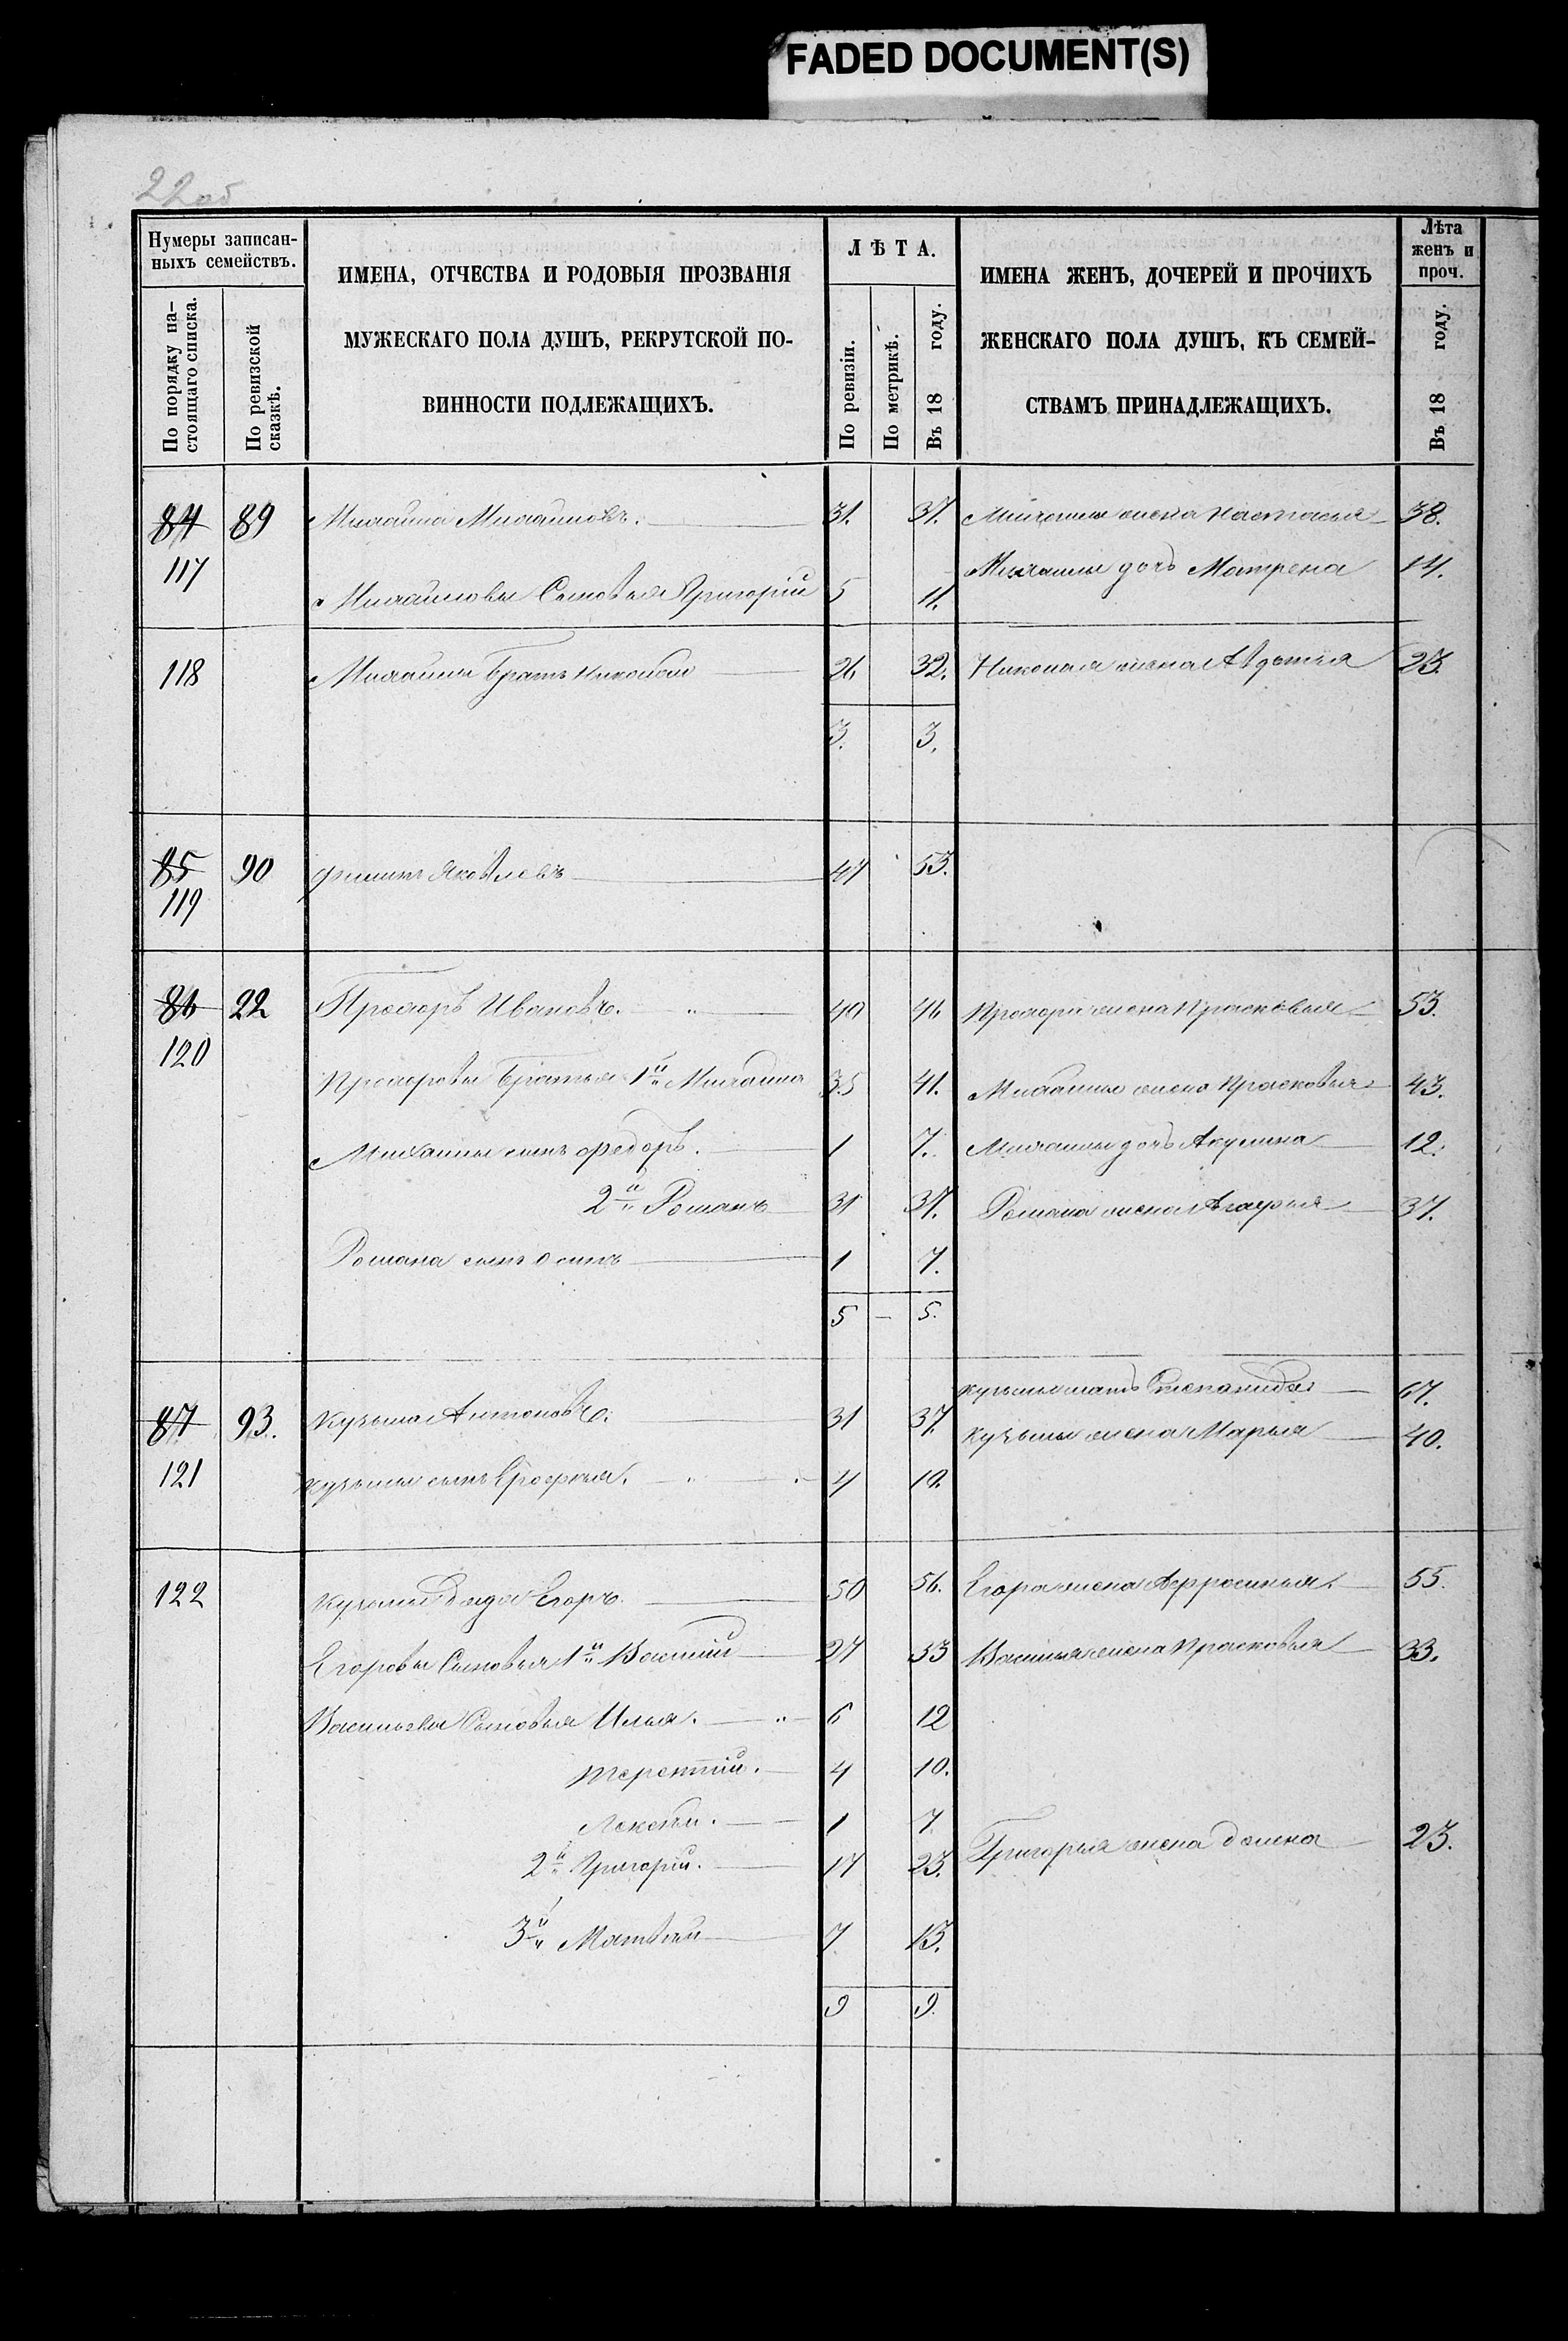 FADED DOCUMENT(S)
22об
Нумеры записан-
ныхъ семействъ.
По порядку на-
стоящаго списка.
По ревизской
сказкѣ.
ИМЕНА, ОТЧЕСТВА И РОДОВЫЯ ПРОЗВАНІЯ
МУЖЕСКАГО ПОЛА ДУШЪ, РЕКРУТСКОЙ ПО-
ВИННОСТИ ПОДЛЕЖАЩИХЪ.
ЛѢТА.
По ревизіи.
По метрикѣ.
Въ 18 году.
ИМЕНА ЖЕНЪ, ДОЧЕРЕЙ И ПРОЧИХЪ
ЖЕНСКАГО ПОЛА ДУШЪ, КЪ СЕМЕЙ-
СТВАМЪ ПРИНАДЛЕЖАЩИХЪ.
Лѣта
женъ и
проч.
Въ 18 году.
84 89 Михайла Михайловъ. 31. 37. Михайлы жена Настасья 38.
117 Михайлы дочь Матрена 14.
Михайловы Сыновья Григорій 5 11.
118 Михайлы братъ Николай 26 32. Николая жена Авдотья 23.
3. 3.
85 90 Филипъ Яковлевъ 47 53.
119
86 22 Прохоръ Ивановъ. 40 46 Прохора жена Прасковья 53.
120
Прохоровы братья 1й Михайла 35 41. Михайлы жена Прасковья 43.
Михайлы сынъ Федоръ. 1 7. Михайлы дочь Акулина 12.
2й Романъ 31 37. Романа жена Агафья 37.
Романа сынъ Осипъ 1 7.
5 — 5.
Кузьмы мать Степанида 67.
87 93. Кузьма Антоновъ. 31 37. Кузьмы жена Марья 40.
121 Кузьмы сынъ Ерофей. 4 10.
122 Кузьмы дядя Егоръ. 50 56. Егора жена Афросинья. 55.
Егоровы Сыновья 1й Василій 27 33 Василья жена Прасковья 33.
Васильевы Сыновья Илья. 6 12
Терентій. 4 10.
Алексѣй. 1 7
2й Григорій. 17 23. Григорья жена Домна 23.
3й Матвѣй 7 13.
9 9.